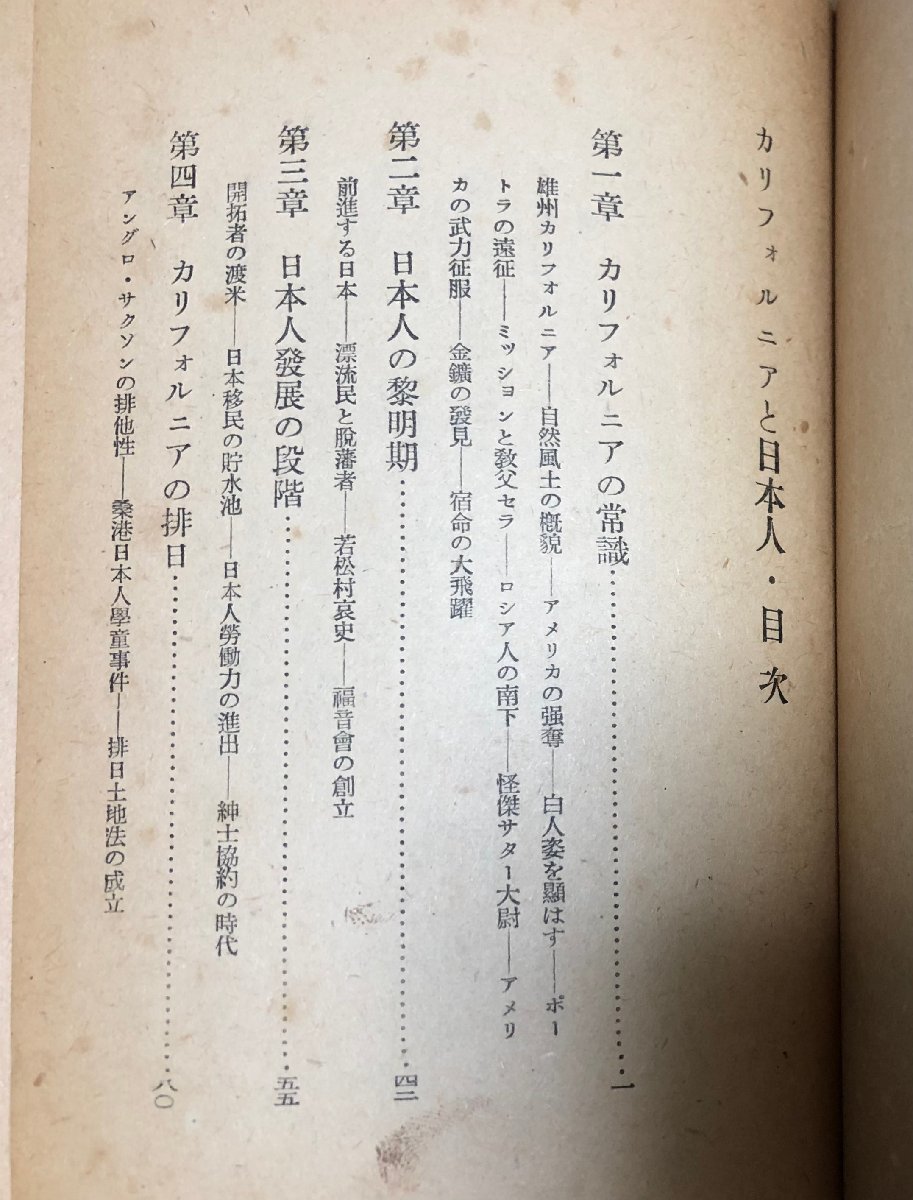 カリフォルニアと日本人・目次
第一章　カリフォルニアの常識……………………一
雄州カリフォルニア――自然風土の概貌――アメリカの强奪――白人姿を顯はす――ポー
トラの遠征――ミッションと敎父セラ――ロシア人の南下――怪傑サター大尉――アメリ
カの武力征服――金鑛の發見――宿命の大飛躍
第二章　日本人の黎明期……………………四二
前進する日本――漂流民と脫藩者――若松村哀史――福音會の創立
第三章　日本人發展の段階……………………五五
開拓者の渡米――日本移民の貯水池――日本人勞働力の進出――紳士協約の時代
第四章　カリフォルニアの排日……………………八〇
アングロ・サクソンの排他性――桑港日本人學童事件――排日土地法の成立